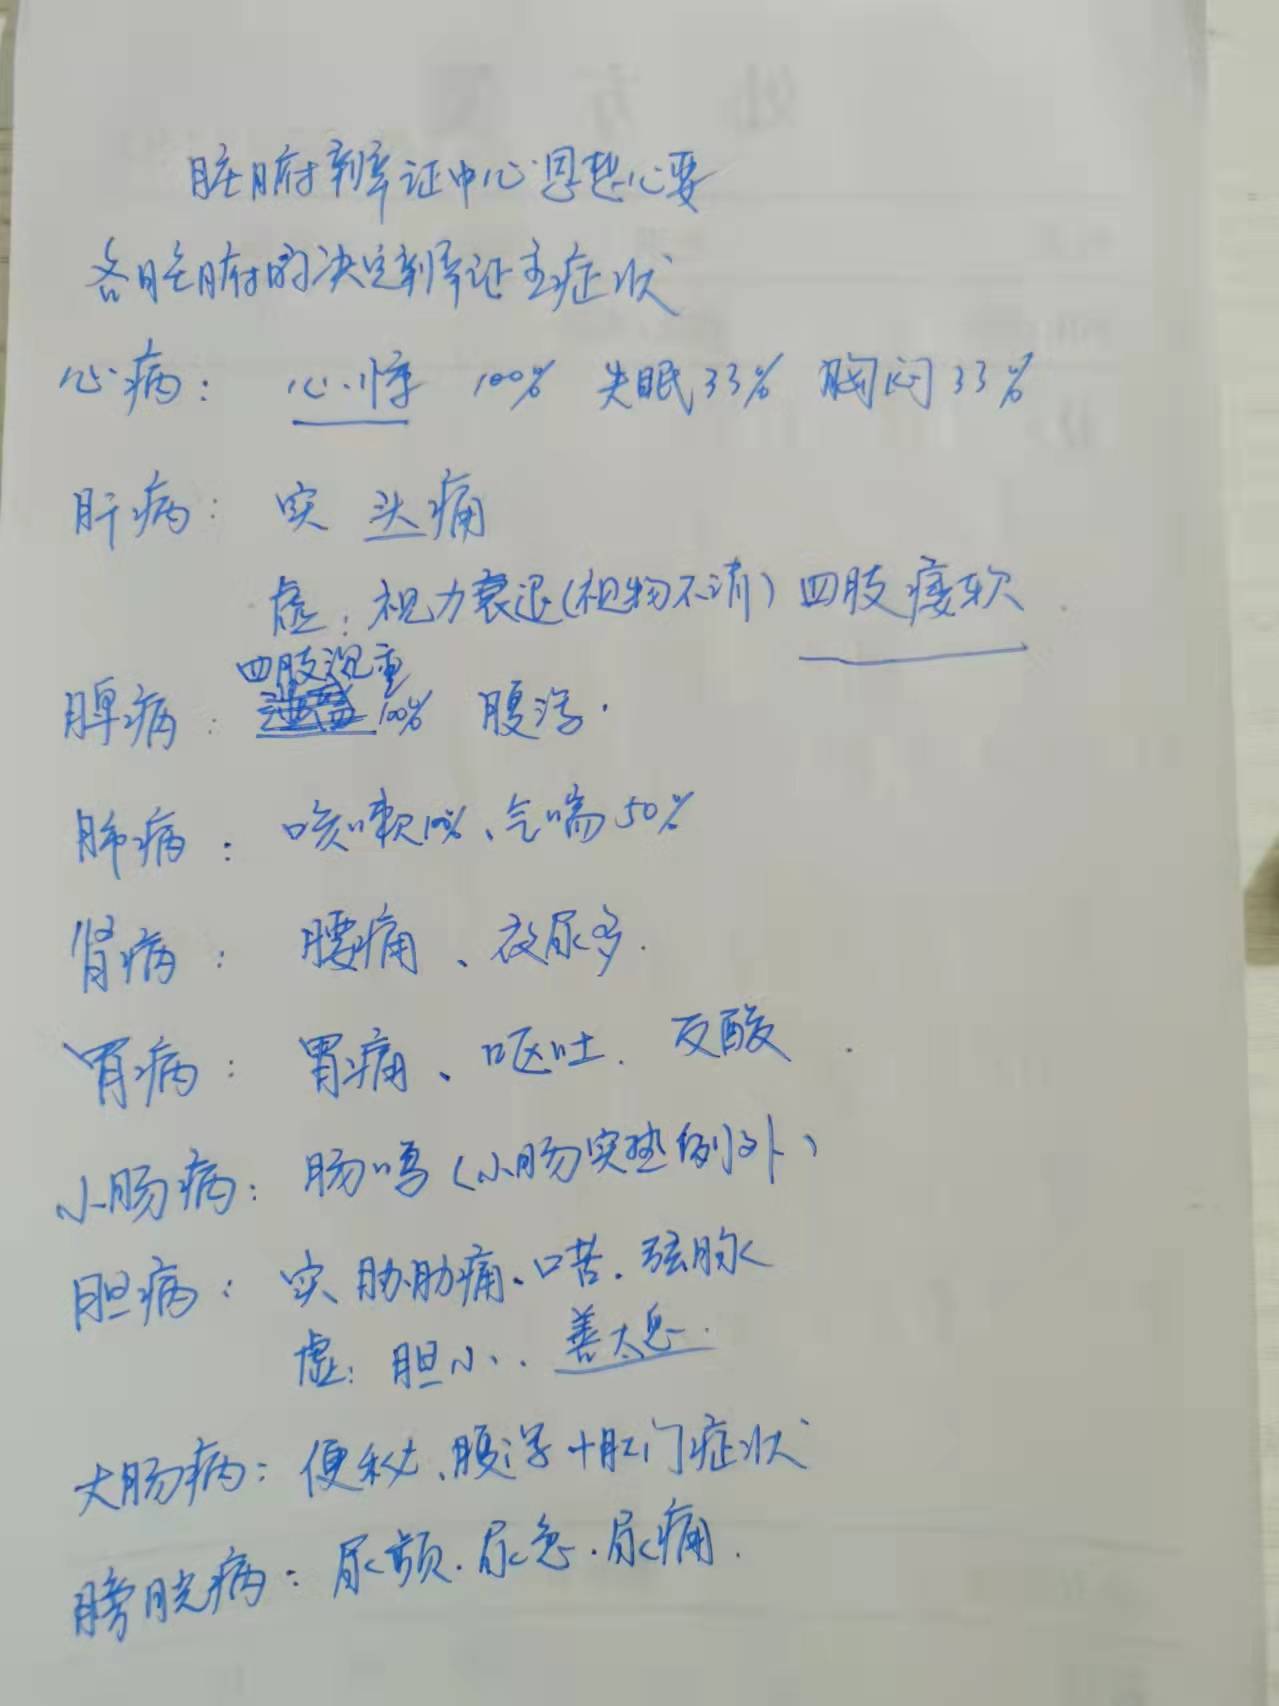 脏腑辨证中心思想心要
各脏腑的决定辨证主症状
心病: 心悸 100% 失眠33% 胸闷33%
肝病: 实 头痛
虚: 视力衰退(视物不清) 四肢痿软
四肢沉重
脾病: 100% 腹泻.
肺病: 咳嗽100%、气喘50%
肾病: 腰痛、夜尿多.
胃病: 胃痛、呕吐. 反酸.
小肠病: 肠鸣(小肠实热例外)
胆病: 实 胁肋痛、口苦. 弦脉
虚: 胆小、. 善太息.
大肠病: 便秘、腹泻+肛门症状
膀胱病: 尿频.尿急.尿痛.